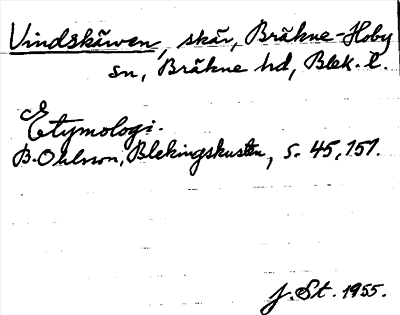 Vindskärven, skär, Bräkne-Hoby
sn, Bräkne hd, Blek. l.
Etymologi.
B. Ohlsson, Blekingskusten, s. 45, 151.
J. St. 1955.